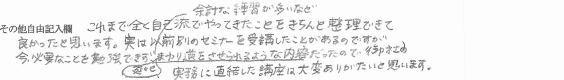 余計な練習が多いなど
その他自由記入欄 これまで全く自己流でやってきたことをきちんと整理できて
良かったと思います。実は以前別のセミナーを受講したことがあるのですが
今必要なことを勉強できずまわり道をさせられるような内容だったので御社の
実務に直結した講座は大変ありがたいと思います。